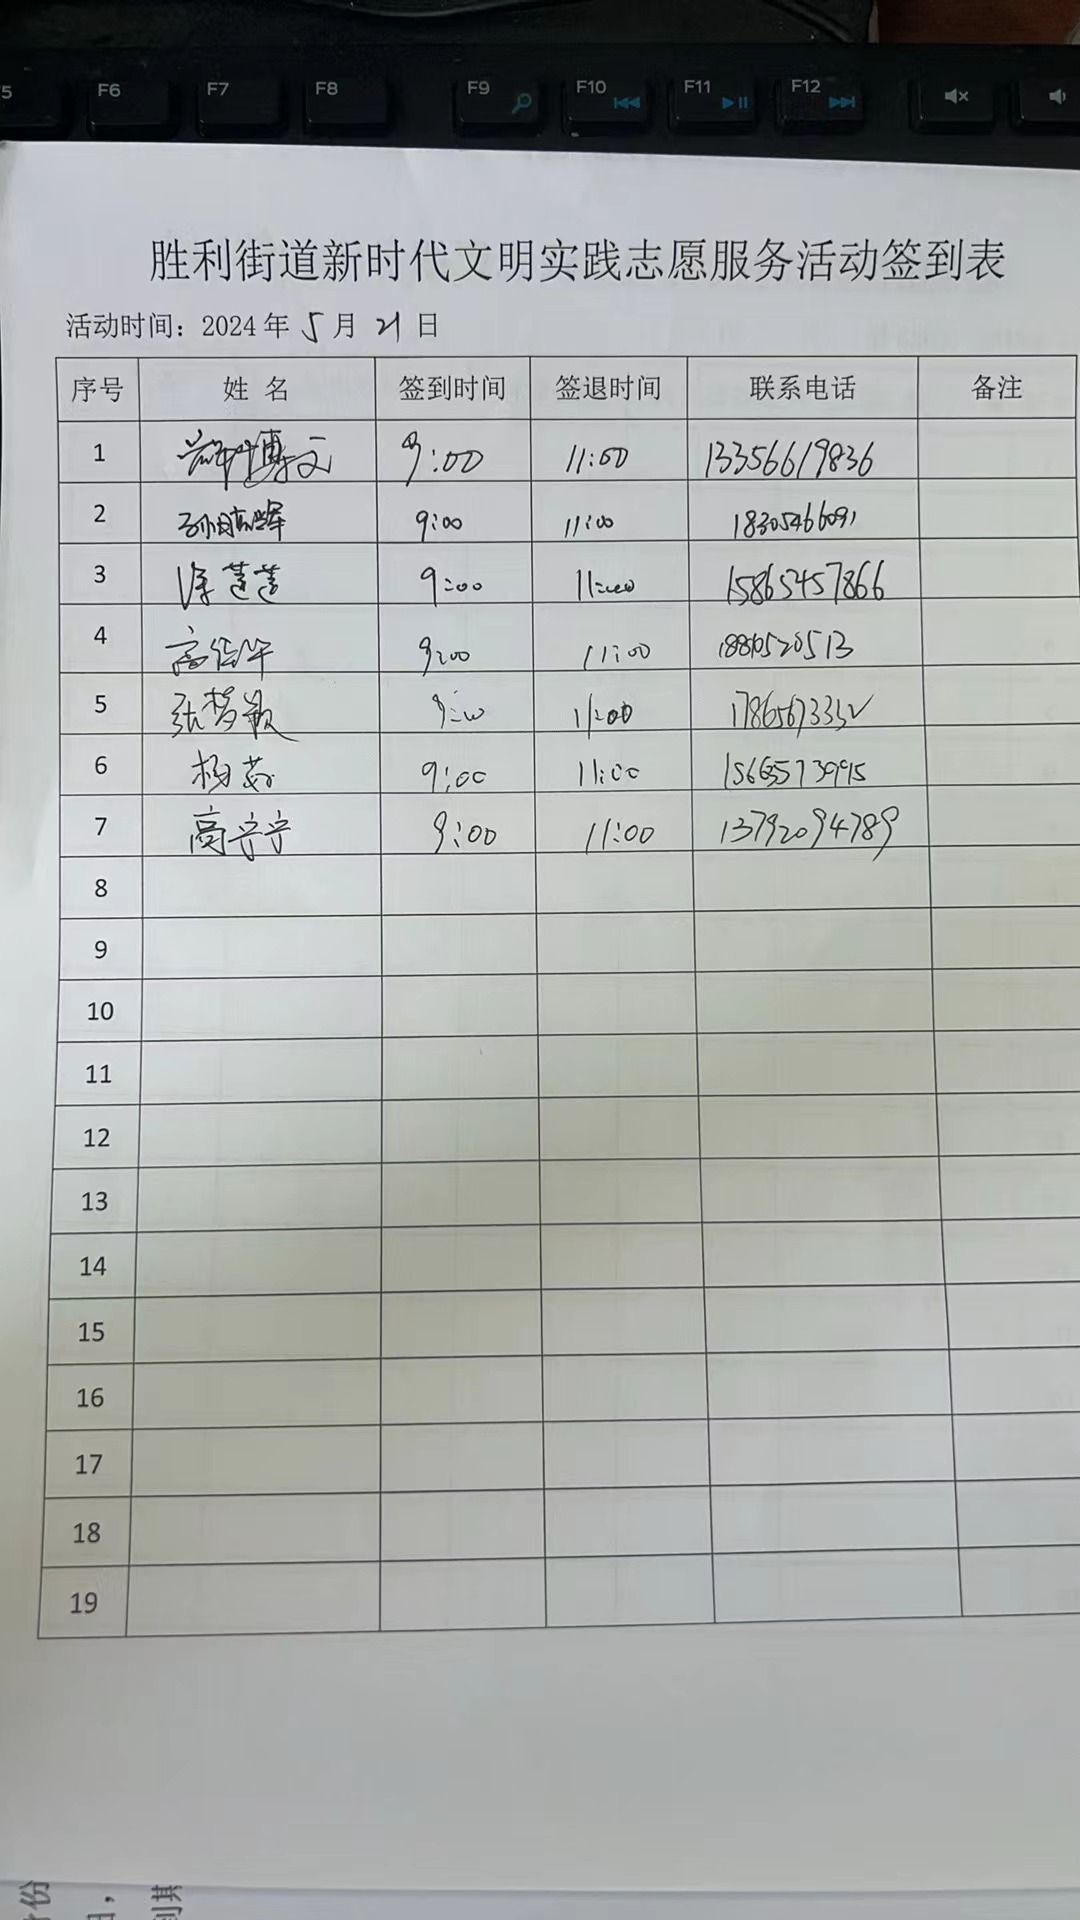 5 F6 F7 F8 F9 F10 F11 F12
胜利街道新时代文明实践志愿服务活动签到表
活动时间：2024 年 5 月 21 日
序号 姓 名 签到时间 签退时间 联系电话 备注
1 博文 9:00 11:00 13356619836
2 9:00 11:00 18305466091
3 徐莲莲 9:00 11:00 15865457866
4 9:00 11:00
5 张梦 9:00 11:00
6 杨茹 9:00 11:00
7 高宁宁 9:00 11:00 13792094789
8
9
10
11
12
13
14
15
16
17
18
19
份